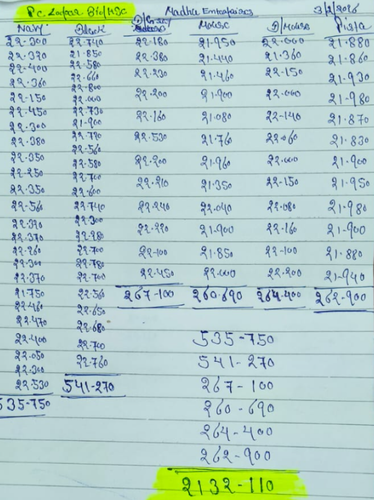 Madhu Enterprises 3/2/2026
Navy Black Mouse D/Mouse Pista
22.300 22.740 22.180 21.950 22.000 21.880
22.320 21.850 22.380 21.440 21.360 21.860
22.400 22.580 22.230 21.460 22.150 21.930
22.360 22.660 22.200 21.900 22.000 21.980
22.150 22.800 22.160 21.080 22.140 21.870
22.450 22.730 22.530 21.760 22.060 21.830
22.300 21.900 22.200 21.960 22.000 21.900
22.380 22.720 22.210 21.350 22.150 21.950
22.350 22.560 22.240 22.040 22.080 21.980
22.250 22.580 22.220 21.900 22.160 21.900
22.350 22.700 22.100 21.850 22.100 21.880
22.560 22.600 22.450 22.000 22.200 21.940
22.320 22.740 267-100 260-690 264-400 262-900
22.370 22.300
22.260 22.280
22.300 22.700
22.370 22.780
21.750 22.700
22.460 22.560
22.470 22.650
22.400 22.680
22.050 22.700
22.300 22.760
22.530 541-270
535-750
535-750
541-270
267-100
260-690
264-400
262-900
2132-110